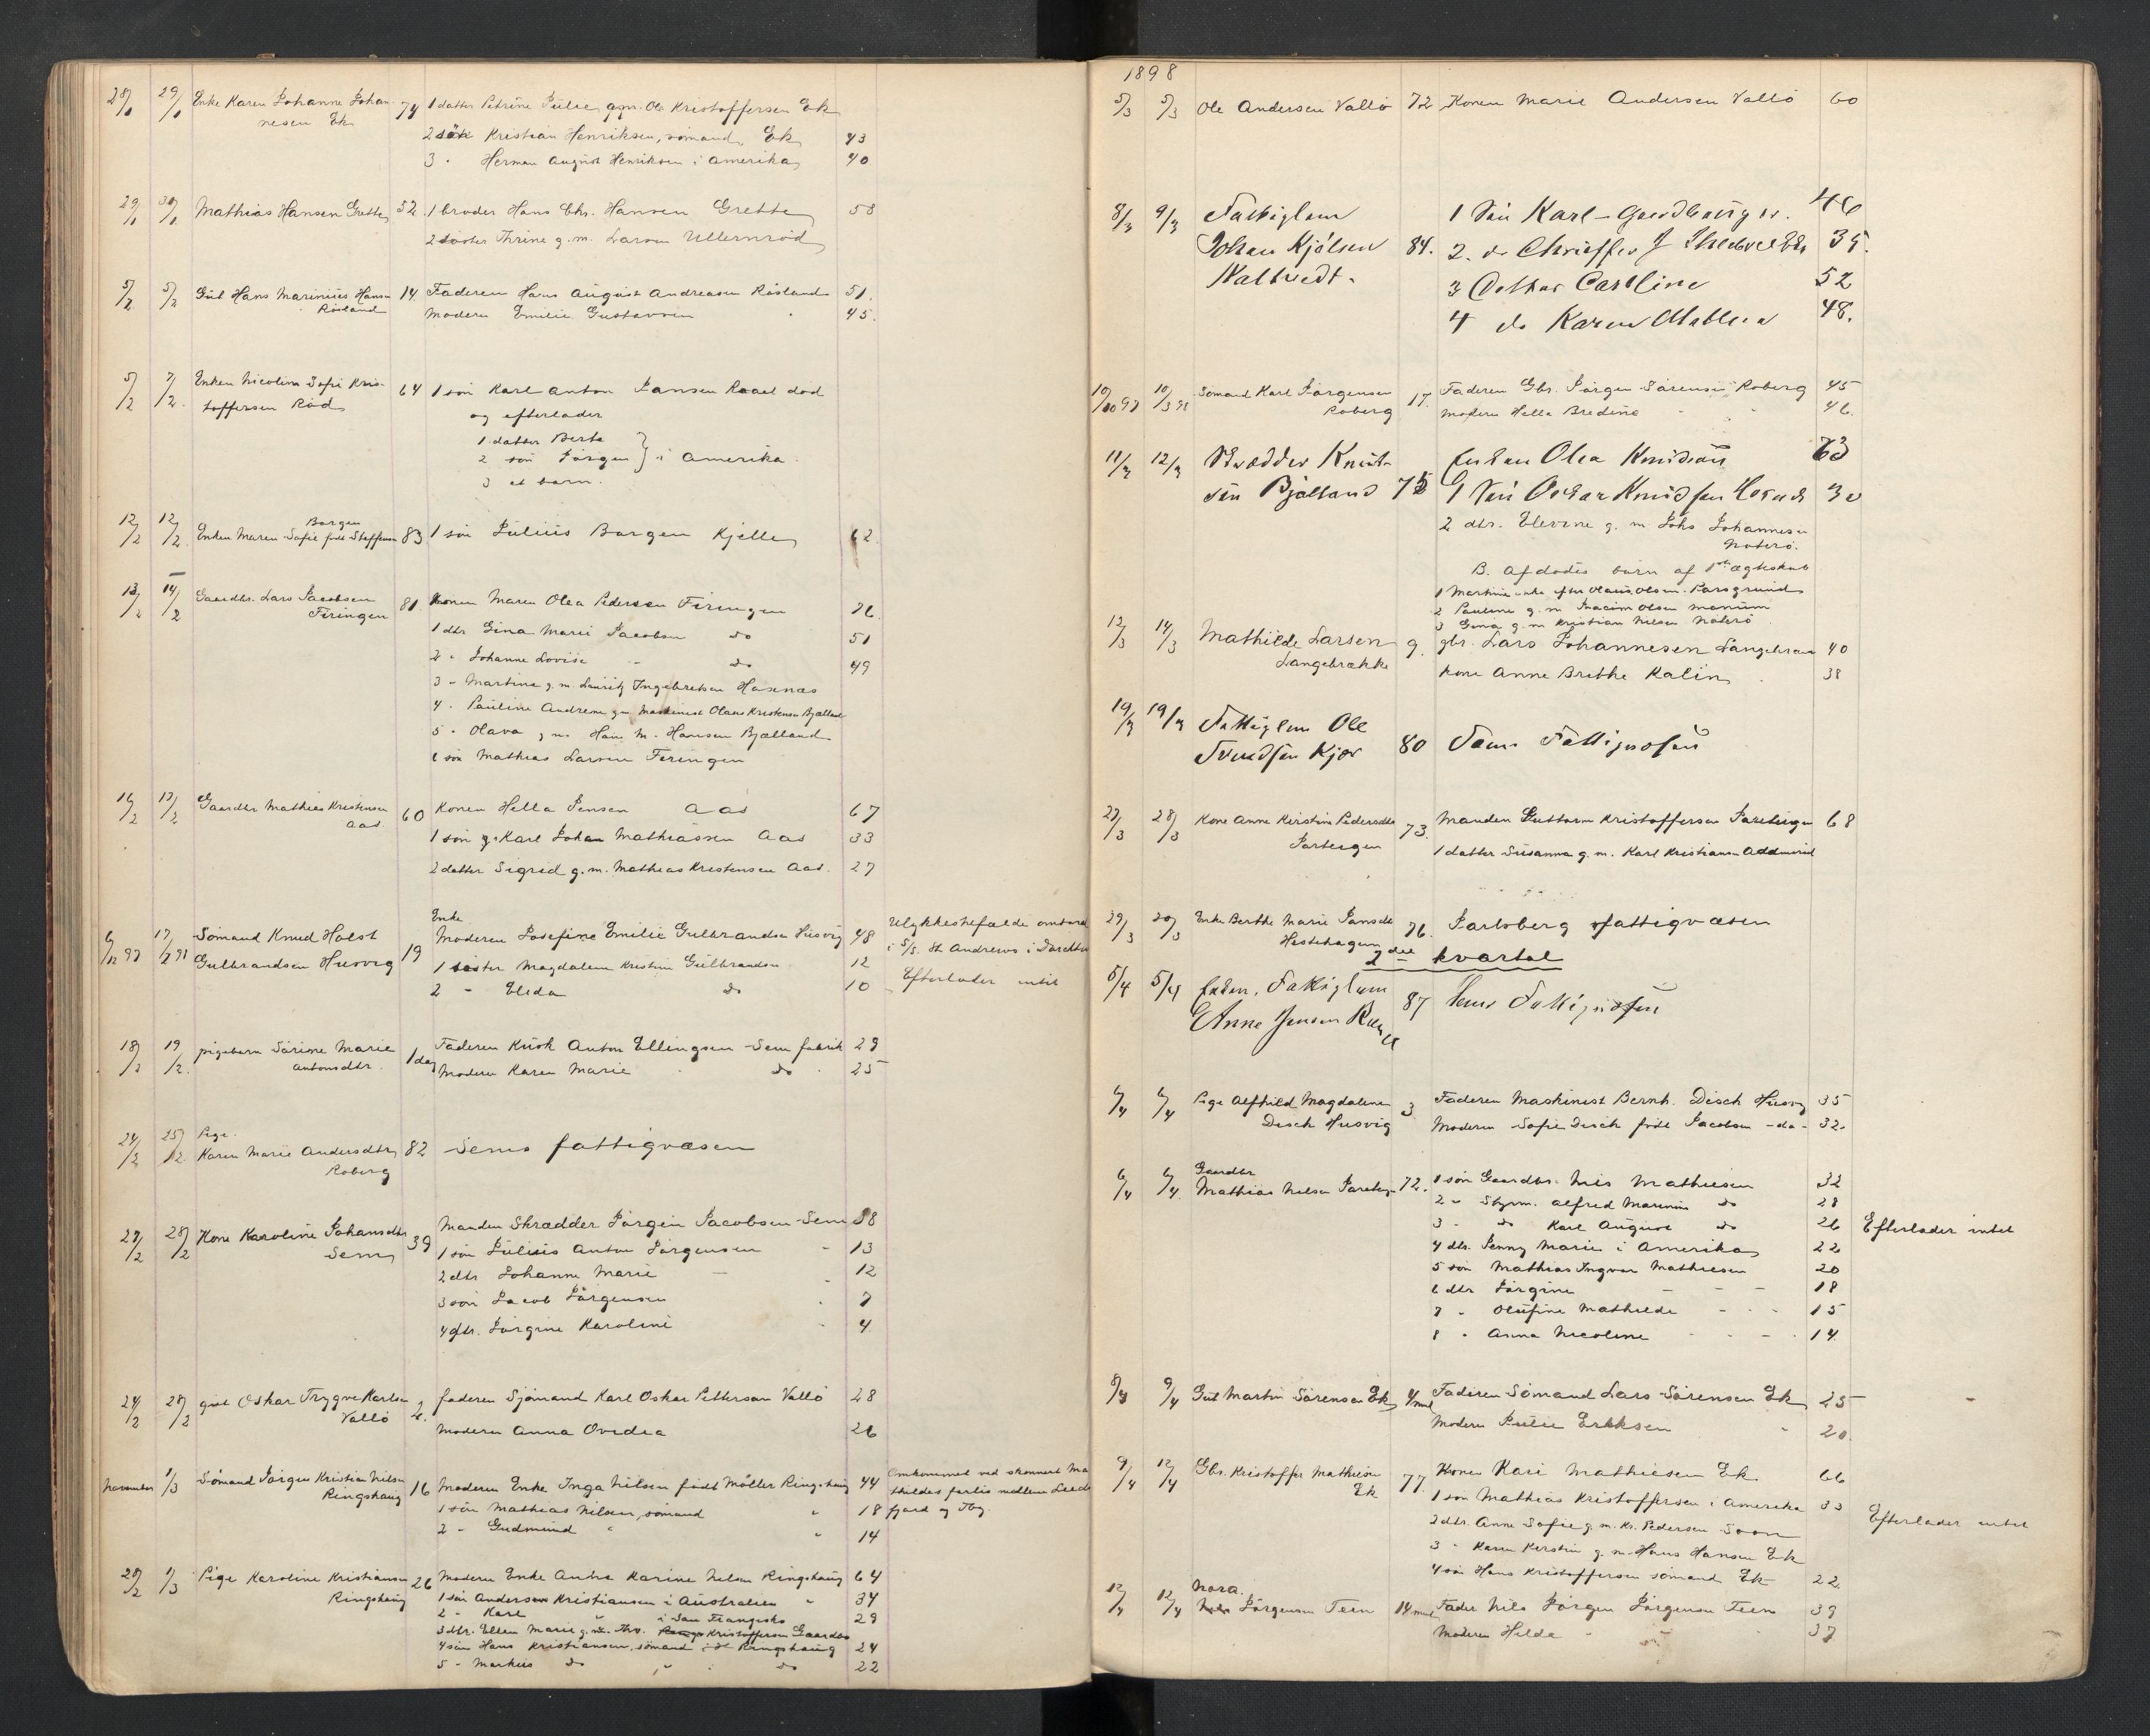 28/1 29/1 Enke Karen Johanne Johan- 74 1 datter Petrine Julie g.m. Ole Kristoffersen Ek
nesen Ek
2 sön Kristian Henriksen, sömand, Ek 43
3 " Herman August Henriksen i Amerika 40
29/1 30/1 Mathias Hansen Grette 52. 1 broder Hans Chr. Hansen Grette 58
2 söster Thrine g.m. Larsen Ullernröd
5/2 5/2 Gut Hans Marinius Hans- 14. Faderen Hans August Andreasen Rösland 51.
Rösland Moderen Emilie Gustavsen " 45.
5/2 7/2. Enken Nicoline Sofie Kris- 64 1 sön Karl Anton Jansen Raael död
toffersen Röd og efterlader
1 datter Berte
2 sön Jörgen } i Amerika.
3 et barn.
12/2 12/2. Enken Maren Sofie född Steffensen 83. 1 sön Julius Borgen Kjelle 62.
Borgen
13/2 14/2 Gaardbr. Lars Jacobsen 81. Konen Maren Olea Pedersen Feringen 76.
Feringen
1 dtr Gina Marie Jacobsen do 51
2 " Johanne Lovise do 49
3 " Martine g.m. Lauritz Ingebretsen Hasnæs
4 " Pauline Andrene g.m. Maskinist Olaus Kristensen Bjælland
5 " Olava g.m. Hans M. Hansen Bjælland
6 sön Mathias Larsen Feringen
16/2 17/2 Gaardbr Mathias Kristensen 60 Konen Hella Jensen Aas 67
Aas.
1 sön Karl Johan Mathiassen Aas 33
2 datter Sigrid g.m. Mathias Kristensen Aas. 27
6/12 97 17/2 98 Sömand Knud Holst 19 Enke
Gulbrandsen Husvig Moderen Josefine Emilie Gulbrandsen Husvig 48 Ulykkestilfælde ombord
1 söster Magdalene Kristine Gulbrandsen 12 i S/S. St. Andrews i
2 " Elida do 10 Efterlader intet
18/2 19/2. pigebarn Sörine Marie 1 dag Faderen Kusk Anton Ellingsen Sem fabrik 29
Antonsdtr. Moderen Karen Marie " do 25
24/2 25/2 Pige.
Karen Marie Andersdtr, 82 Sems fattigvæsen
Roberg
27/2 28/2 Kone Karoline Johansdtr 39 Manden Skrædder Jörgen Jacobsen Sem 38
Sem 1 sön Julius Anton Jörgensen " 13
2 dtr Johanne Marie " 12
3 sön Jacob Jörgensen " 7
4 dtr. Jörgine Karoline " 4.
24/2 28/2 gut Oskar Trygve Karlsen faderen Sjömand Karl Oskar Pettersen Vallö 28
Vallö Moderen Anna Ovidia 26
November 1/3 Sömand Jörgen Kristian Nilsen 16 Moderen Enke Inga Nilsen född Möller Ringshaug 44 Omkommet ved skonnert Ma-
Ringshaug 1 sön Mathias Nilsen, sömand " 18 thildes forlis mellem
2 " Gudmund " " 14 fjord og Tbg.
28/2 1/3 Pige Karoline Kristiansen 26 Moderen Enke Anthe Karine Nilsen Ringshaug 64
Ringshaug 1 sön Anderson Kristiansen i Australien " 34
2 " Karl " i San Frangisko 29
3 dtr. Ellen Marie g.m. Thv. Kristoffersen Gaardbo
4 sön Hans Kristiansen, sömand Ringshaug 24
5 " Markus do " do 22
1898
5/3 5/3 Ole Andersen Vallö 72 Konen Marie Andersen Vallö 60
8/3 9/3 Fattiglem 1 Sön Karl 46
Johan Kjölsen 84. 2. do 35.
Valtvedt. 3 Detter Caroline 52
4 do Karen 48.
10/10 97 10/3 98 Sömand Karl Jörgensen 17. Faderen Gbr. Jörgen Sörensen Roberg 45
Roberg Moderen Hella Bredine " " 46.
11/3 12/3 Skrædder Knut- Enken Olea Knudsen 63
sen Bjælland 75 1 Sön Oskar Knudsen 30
2 dtr. Elevine g.m. Johs Johannesen
Nöterö.
B. Afdödes barn af 1ste ægteskab
1 Martine enke efter Olaus Olsen. Porsgrund
2 Pauline g.m. Joacim Olsen
3 Gina g.m. Kristian Nilsen Nöterö
12/3 14/3 Mathilde Larsen 9. gbr. Lars Johannesen Langebrække 40
Langebrække Kone Anne Brethe Kalin 38
19/3 19/3 Fattiglem Ole
Svendsen Kjær 80 Sems Fattigvæsen
27/3 28/3 Kone Anne Kirstine Pedersdtr 73. Manden Guttorm Kristoffersen Jareteigen 68
Jarteigen 1 datter Susanna g.m. Karl Kristiansen
29/3 30/3 Enke Berthe Marie Jansdtr 76. Jarlsberg fattigvæsen
Hestehagen
2det kvartal
5/4 5/4 Enken, Fattiglem 87 Sems Fattigvæsen
Anne Jensen
6/4 6/4 Pige Alfhild Magdalene 3. Faderen Maskinist Bernh. Disch Husvig 35
Disch Husvig Moderen Sofie Disch född Jacobsen - do - 32.
6/4 6/4. Gaardbr
Mathias Nilsen Jareteig 72. 1 sön Gaardbr. Nils Mathiesen 32
2 " Styrm. Alfred Marinius do 28
3 " do Karl August do 26 Efterlader intet
4 dtr. Jenny Marie i Amerika 22
5 sön Mathias Ingvar Mathiesen 20
6 dtr Jörgine " " " 18
7 " Olufine Mathilde " " 15
8 " Anna Nicoline " " " 14.
8/4 9/4 Gut Martin Sörensen Ek 4 mnd Faderen Sömand Lars Sörensen Ek 25
Moderen Julie Eriksen " 20.
9/4 12/4 Gbr. Kristoffer Mathiesen 77. Konen Kari Mathiesen Ek. 66
Ek 1 sön Mathias Kristoffersen i Amerika 33
2 dtr. Anne Sofie g.m. Kr. Pedersen Soon Efterlader intet
3 " Karen Kirstin g.m. Hans Hansen Ek
4 sön Hans Kristoffersen sömand Ek 22.
12/4 12/4 Nora.
Jörgensen Teen 14 mnd Fader Nils Jörgen Jörgensen Teen 39
Moderen Hilda " " 37